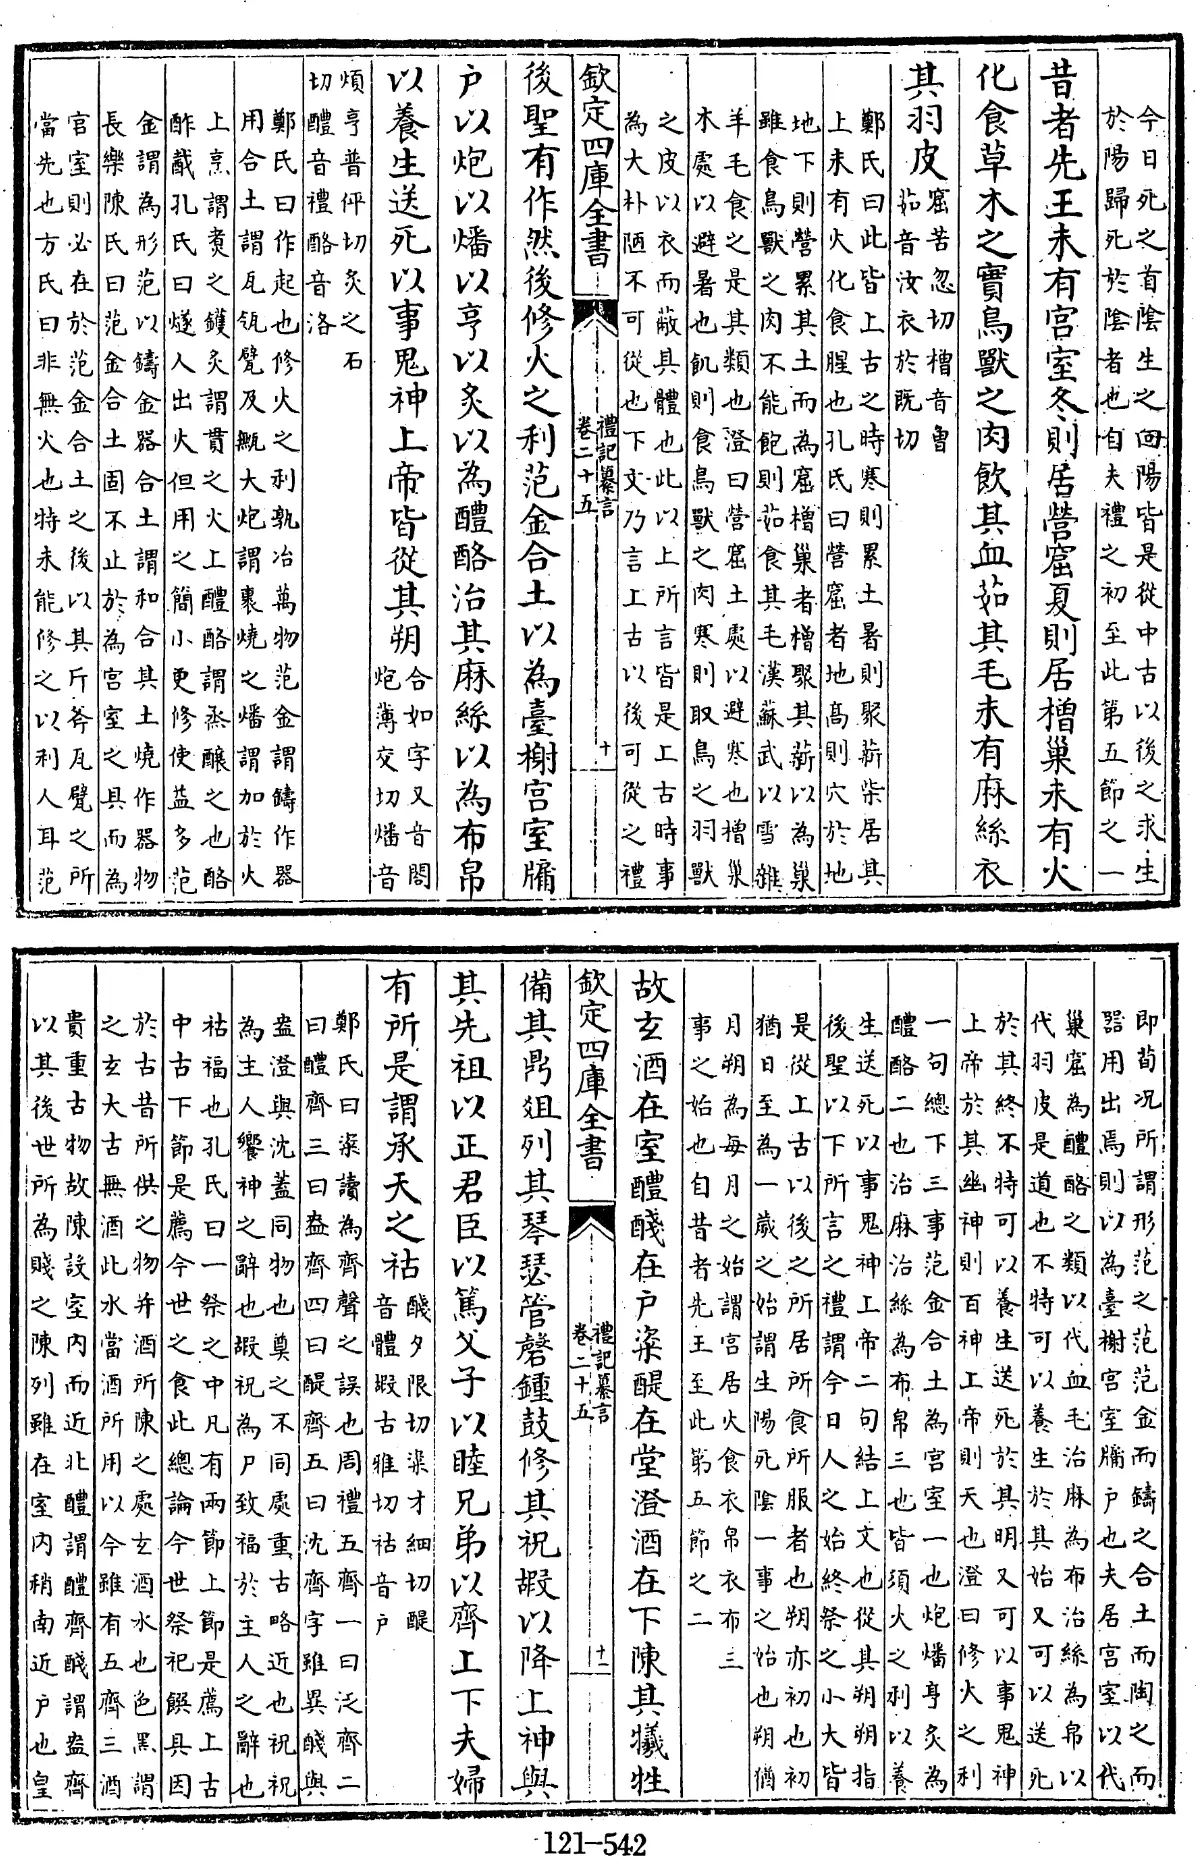 今日死之首陰生之向陽皆是從中古以後之求生
於陽歸死於陰者也自夫禮之初至此第五節之一
昔者先王未有宫室冬則居營窟夏則居橧巢未有火
化食草木之實鳥獸之肉飲其血茹其毛未有麻絲衣
其羽皮
窟苦忽切橧音曾
茹音汝衣於既切
鄭氏曰此皆上古之時寒則累土暑則聚薪柴居其
上未有火化食腥也孔氏曰營窟者地髙則穴於地
地下則營累其土而為窟橧巢者橧聚其薪以為巢
雖食鳥獸之肉不能飽則茹食其毛漢蘇武以雪雜
羊毛食之是其類也澄曰營窟土處以避寒也橧巢
木處以避暑也飢則食鳥獸之肉寒則取鳥之羽獸
之皮以衣而蔽其體也此以上所言皆是上古時事
為大朴陋不可從也下文乃言上古以後可從之禮
欽定四庫全書
禮記纂言
卷二十五
十
後聖有作然後修火之利范金合土以為臺榭宫室牖
户以炮以燔以亨以炙以為醴酪治其麻絲以為布帛
以養生送死以事鬼神上帝皆從其朔
合如字又音閤
炮薄交切燔音
煩亨普伻切炙之石
切醴音禮酪音洛
鄭氏曰作起也修火之利孰冶萬物范金謂鑄作器
用合土謂瓦瓴甓及甒大炮謂裹燒之燔謂加於火
上烹謂煑之鑊炙謂貫之火上醴酪謂烝釀之也酪
酢䤘孔氏曰燧人出火但用之簡小更修使益多范
金謂為形范以鑄金器合土謂和合其土燒作器物
長樂陳氏曰范金合土固不止於為宫室之具而為
宫室則必在於范金合土之後以其斤斧瓦甓之所
當先也方氏曰非無火也特未能修之以利人耳范
即荀况所謂形范之范范金而鑄之合土而陶之而
器用出焉則以為臺榭宫室牖户也夫居宫室以代
巢窟為醴酪之類以代血毛治麻為布治絲為帛以
代羽皮是道也不特可以養生於其始又可以送死
於其終不特可以養生送死於其明又可以事鬼神
上帝於其幽神則百神上帝則天也澄曰修火之利
一句總下三事范金合土為宫室一也炮燔亨炙為
醴酪二也治麻治絲為布帛三也皆須火之利以養
生送死以事鬼神上帝二句結上文也從其朔朔指
後聖以下所言之禮謂今日人之始終祭之小大皆
是從上古以後之所居所食所服者也朔亦初也初
猶日至為一歲之始謂生陽死陰一事之始也朔猶
月朔為每月之始謂宫居火食衣帛衣布三
事之始也自昔者先王至此第五節之二
故玄酒在室醴醆在户粢醍在堂澄酒在下陳其犧牲
欽定四庫全書
禮記纂言
卷二十五
十一
備其鼎俎列其琴瑟管磬鍾鼓修其祝嘏以降上神與
其先祖以正君臣以篤父子以睦兄弟以齊上下夫婦
有所是謂承天之祜
醆夕限切粢才細切醍
音體嘏古雅切祜音户
鄭氏曰粢讀為齊聲之誤也周禮五齊一曰泛齊二
曰醴齊三曰盎齊四曰醍齊五曰沈齊字雖異醆與
盎澄與沈蓋同物也奠之不同處重古略近也祝祝
為主人饗神之辭也嘏祝為尸致福於主人之辭也
祜福也孔氏曰一祭之中凡有兩節上節是薦上古
中古下節是薦今世之食此總論今世祭祀饌具因
於古昔所供之物并酒所陳之處玄酒水也色黑謂
之玄大古無酒此水當酒所用以今雖有五齊三酒
貴重古物故陳設室内而近北醴謂醴齊醆謂盎齊
以其後世所為賤之陳列雖在室内稍南近户也皇
121-542